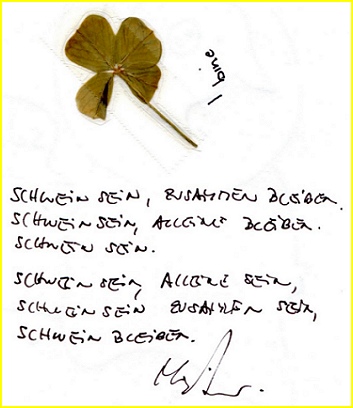 1 bine
SCHWEIN SEIN, ZUSAMMEN BLEIBEN.
SCHWEIN SEIN, ALLEINE BLEIBEN.
SCHWEIN SEIN.
SCHWEIN SEIN, ALLEINE SEIN,
SCHWEIN SEIN ZUSAMMEN SEIN,
SCHWEIN BLEIBEN.